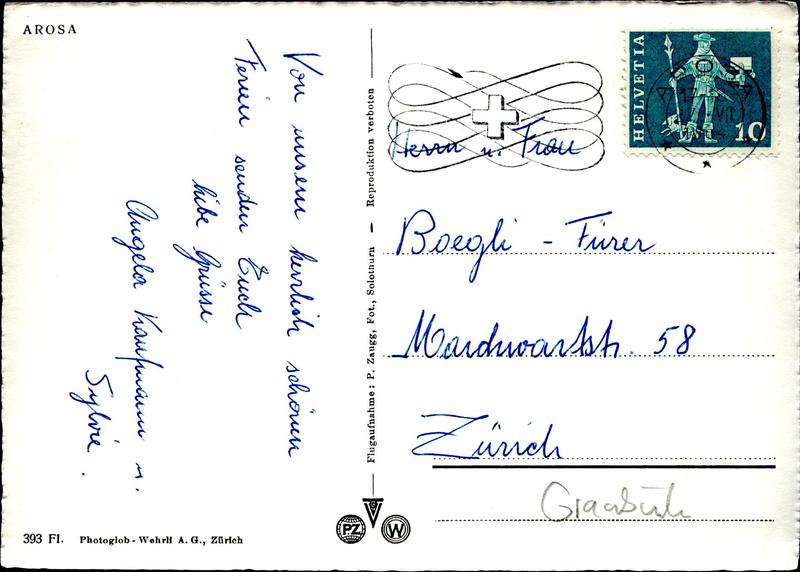 AROSA
Von unsern herrlich schönen
Ferien senden Euch
liebe Grüsse
Angela Kaufmann u.
Sylvie.
393 Fl. Photoglob-Wehrli A. G., Zürich
Flugaufnahme: P. Zaugg, Fot., Solothurn – Reproduktion verboten
PZ
W
HELVETIA
10
AROSA
Herrn u. Frau
Boegli - Fürer
58
Zürich